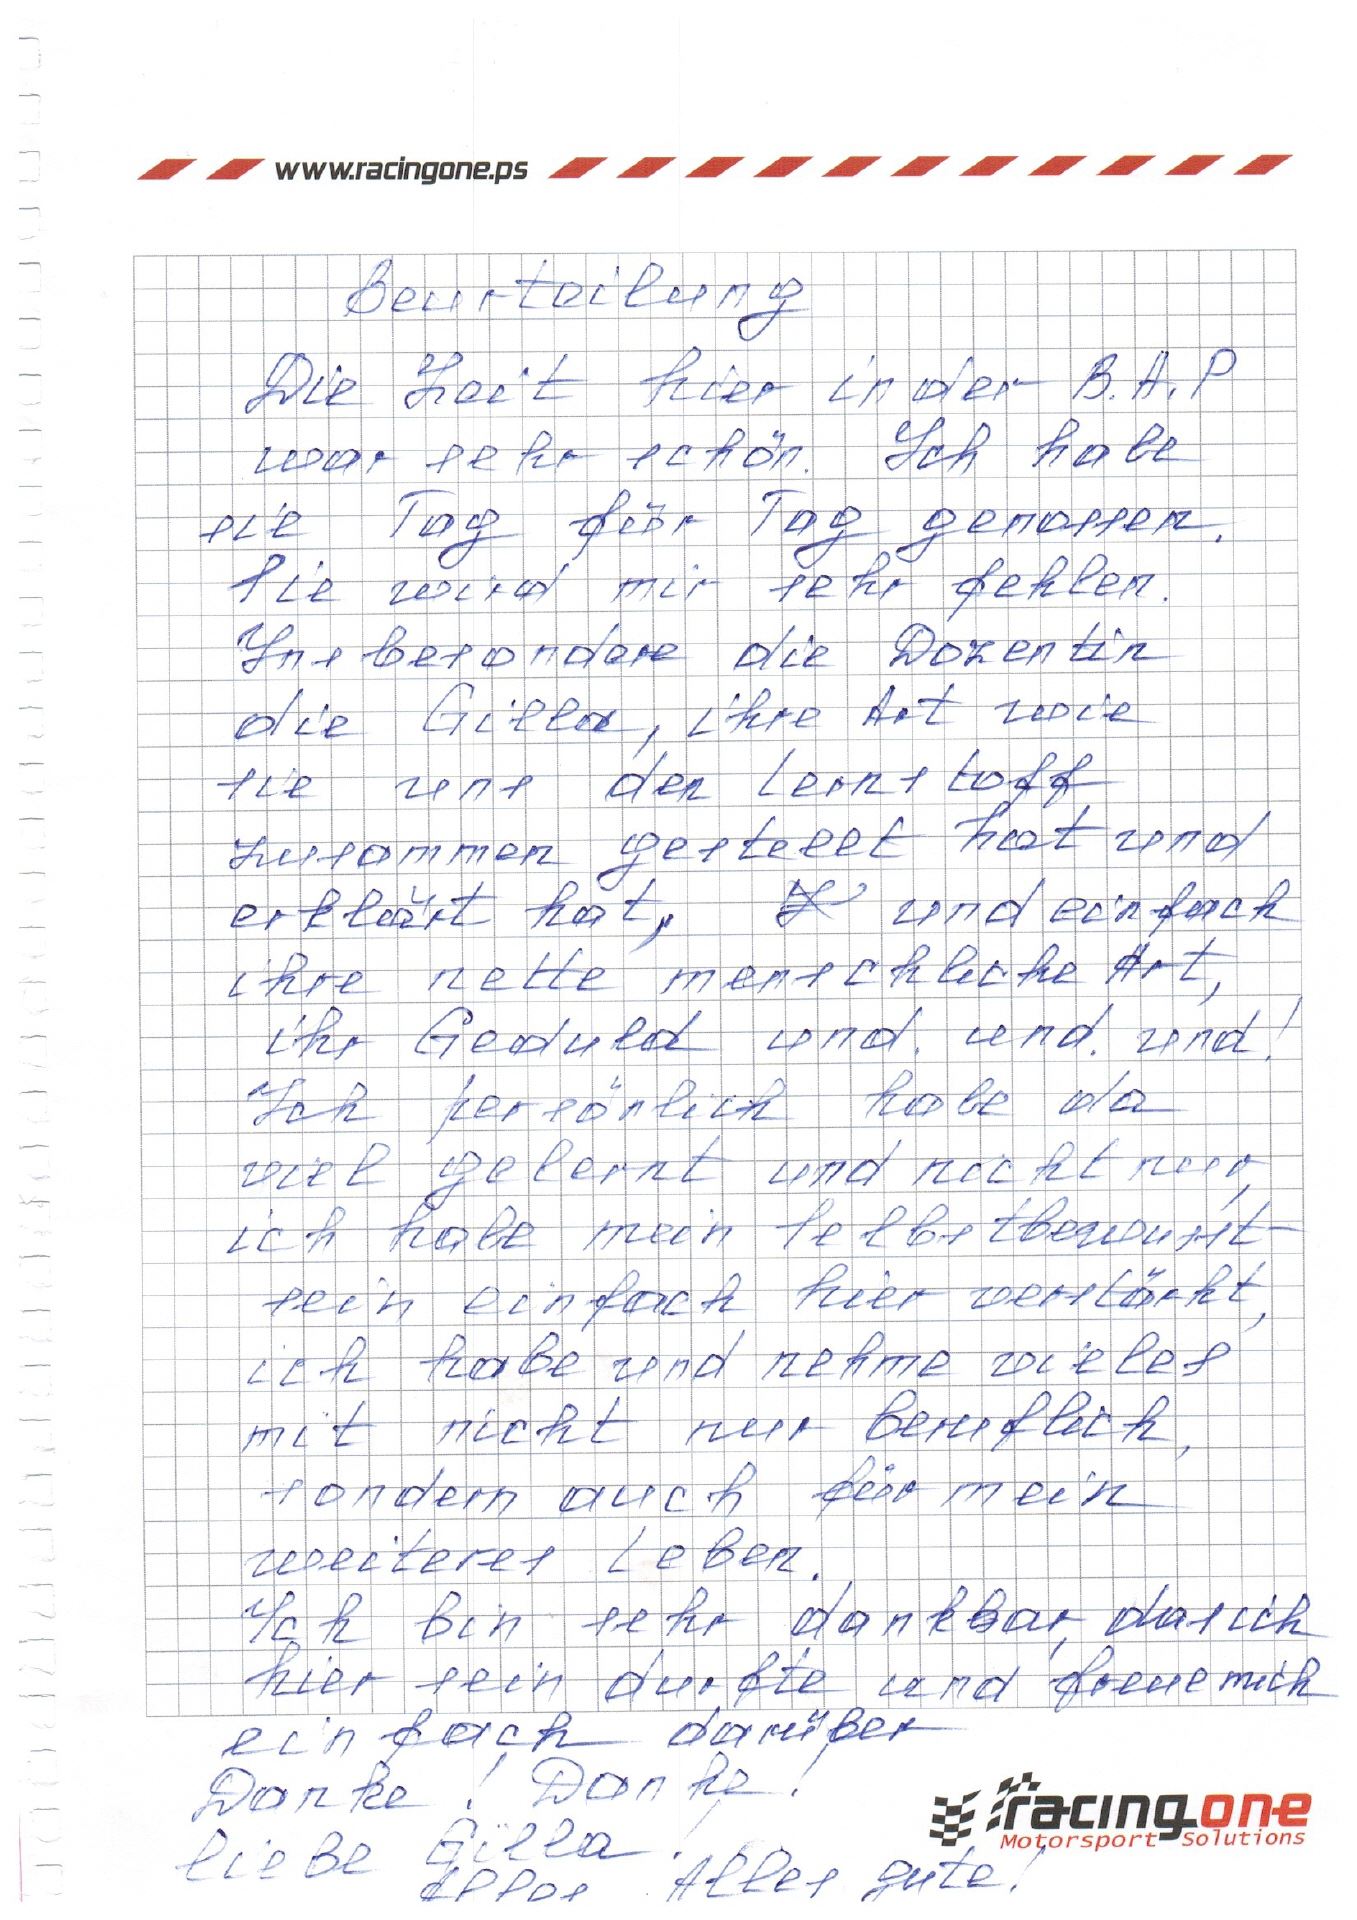 www.racingone.ps
Beurteilung
Die Zeit hier in der B.A.P
war sehr schön. Ich habe
sie Tag für Tag genossen.
Sie wird mir sehr fehlen.
Insbesondere die Dozentin
die Gilla, ihre Art wie
sie uns den Lernstoff
zusammen gestellt hat und
erklärt hat, und einfach
ihre nette menschliche Art,
ihr Geduld und. und. und!
Ich persönlich habe da
viel gelernt und nicht nur,
ich habe mein Selbstbewusst-
sein einfach hier verstärkt,
ich habe und nehme vieles
mit nicht nur beruflich,
sondern auch für mein
weiteres Leben.
Ich bin sehr dankbar, das ich
hier sein durfte und freue mich
einfach darüber
Danke! Danke!
liebe Gilla!
Alles gute!
racing one
Motorsport Solutions